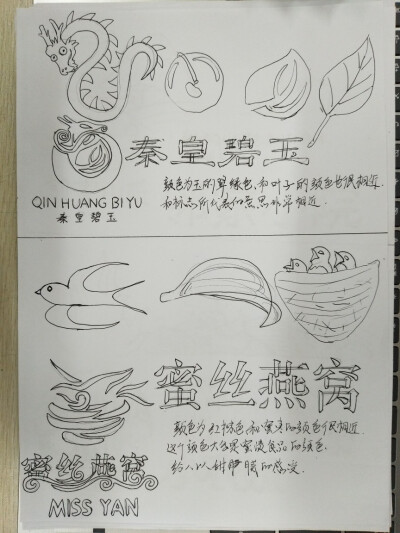 秦皇碧玉
颜色为玉的翠绿色、和叶子的颜色也很相近.
和标志所代表的意思非常相近.
QIN HUANG BI YU
秦皇碧玉
蜜丝燕窝
颜色为红棕色和蜜 的颜色很相近
这个颜色大多是 食品的颜色.
给人以甜 的感觉.
蜜丝燕窝
MISS YAN